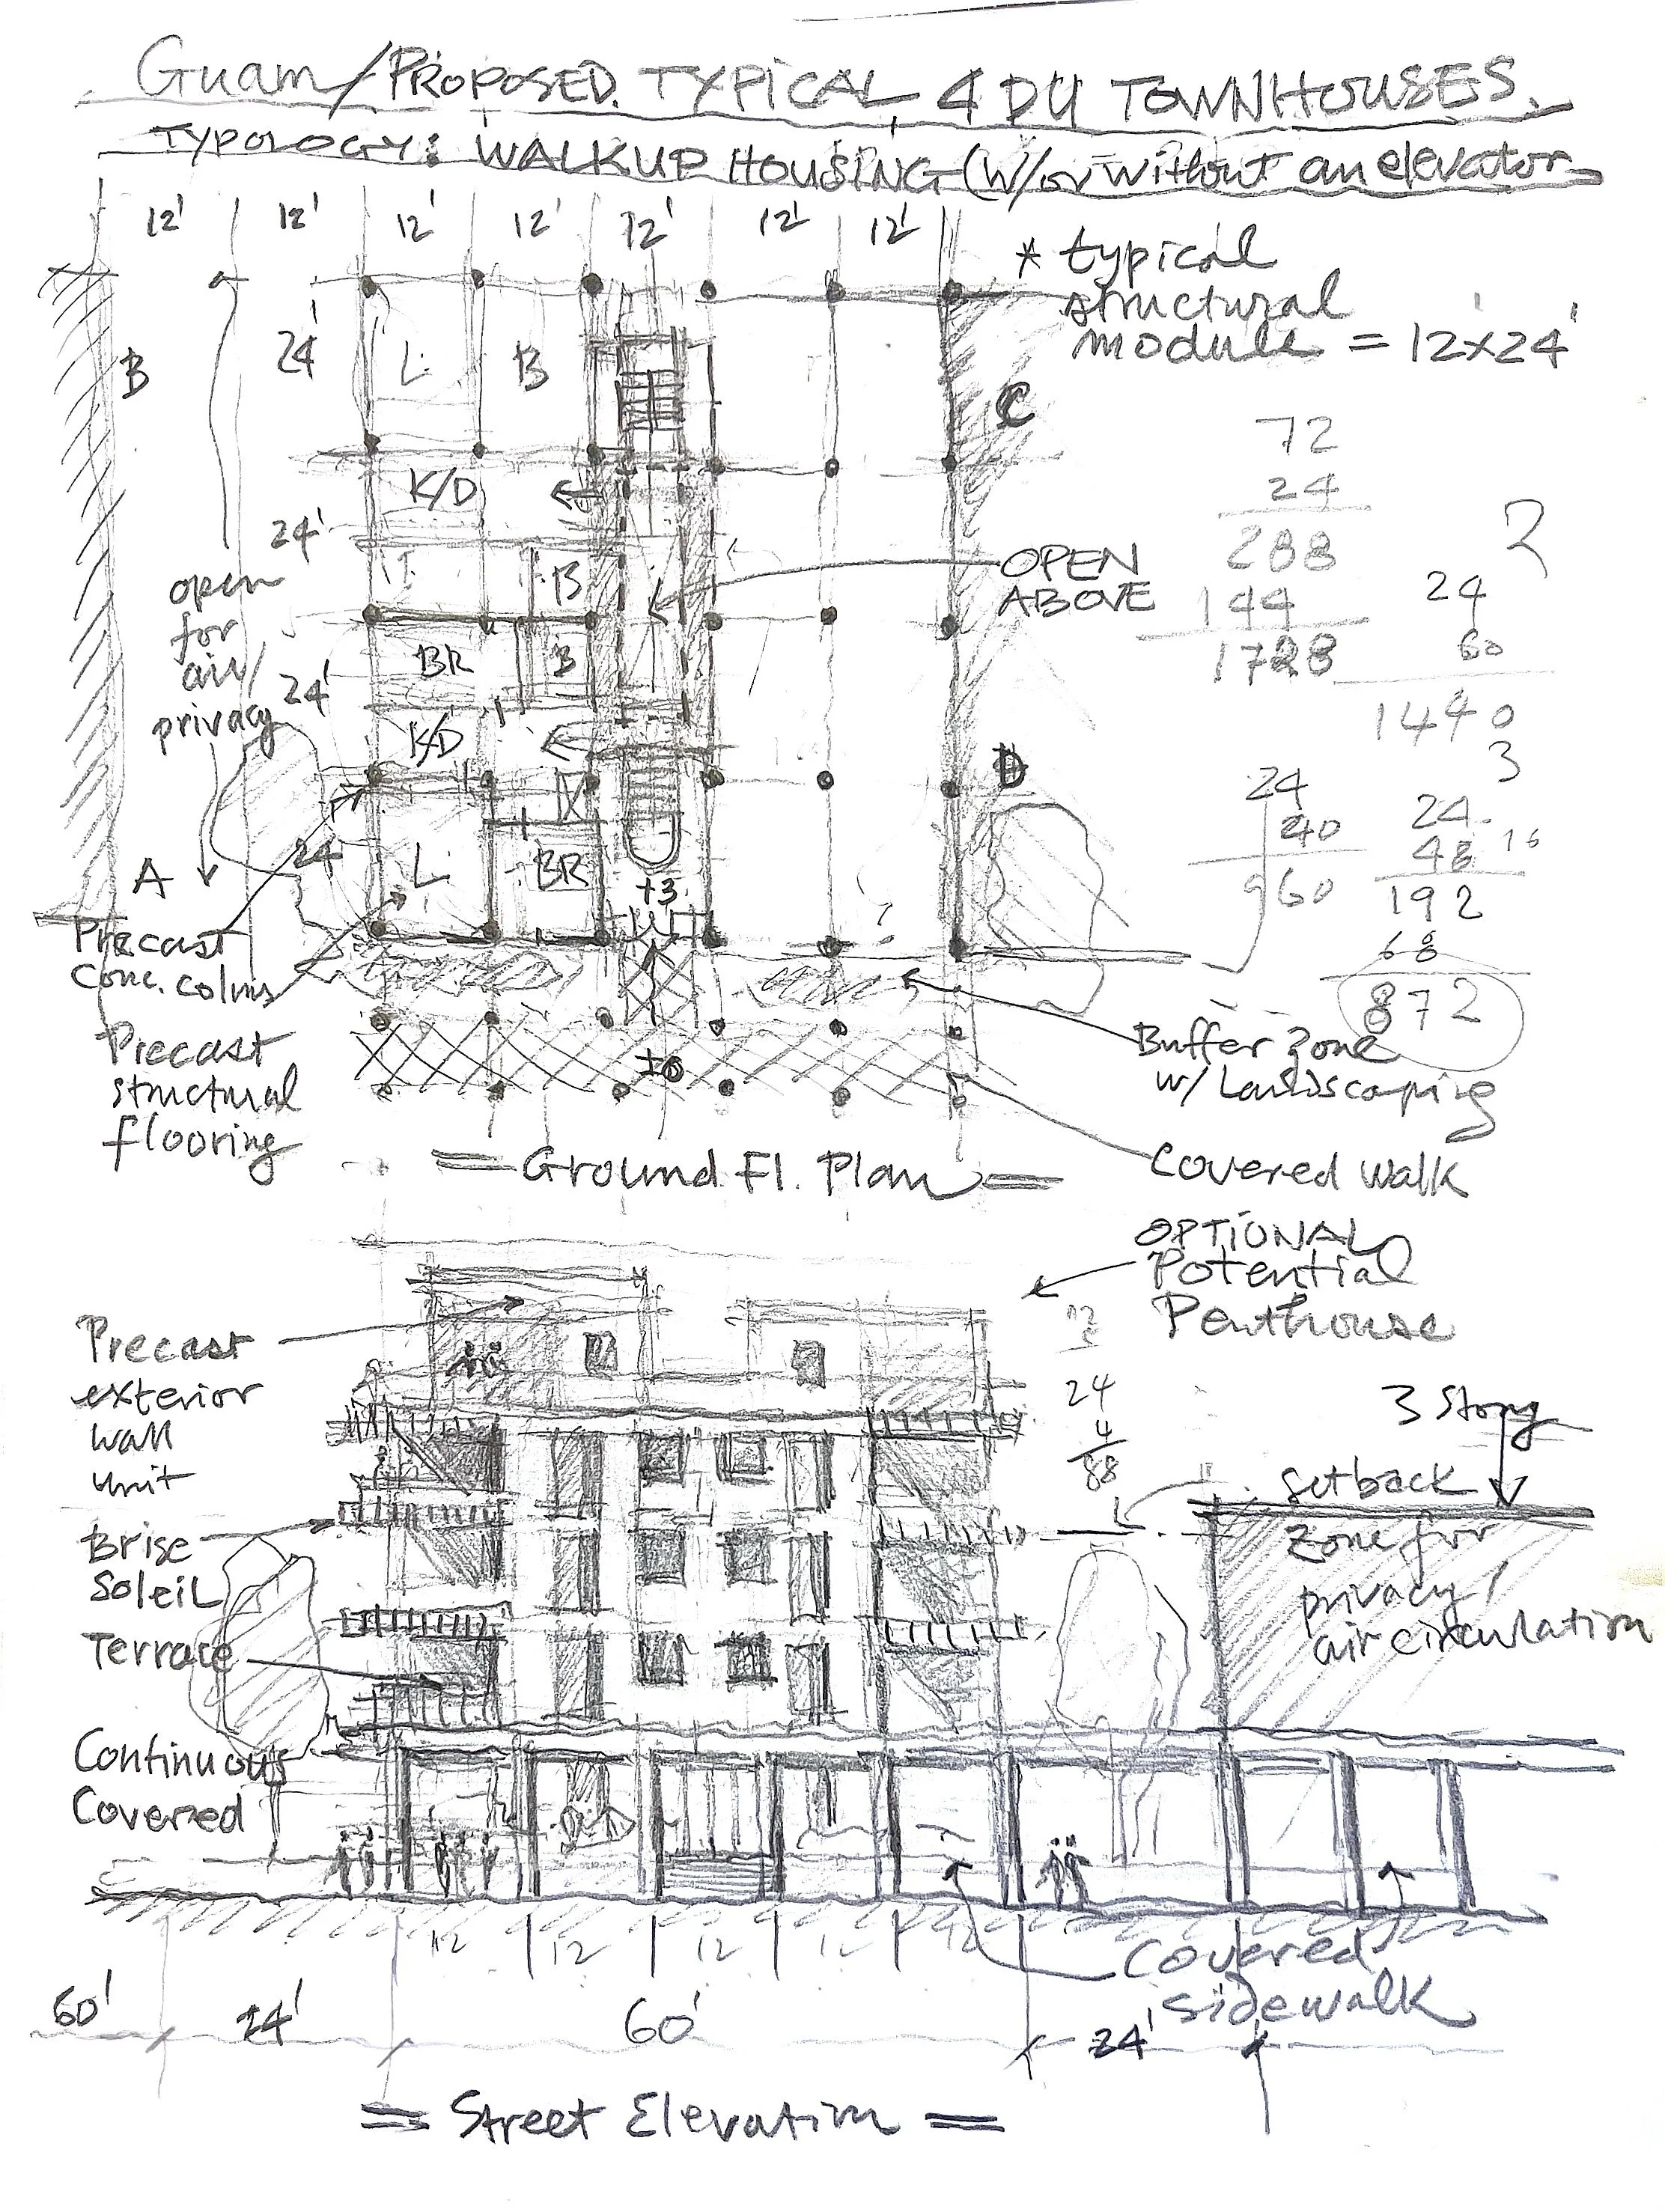 Guam/PROPOSED TYPICAL 4 DU TOWNHOUSES.
TYPOLOGY: WALKUP HOUSING (W/or Without an elevator
12' 12' 12' 12' 12' 12' 12'
* typical
structural
module = 12x24'
B
24'
L
B
C
72
24
288
144
1728
2
24
60
1440
K/D
24'
OPEN
ABOVE
open
for
air/
privacy
B
BR
B
24'
K/D
D
3
24
40
960
24
48 16
192
68
872
24
A
L
BR
+3
Precast
Conc. colms
Precast
structural
flooring
±0
Buffer zone
w/ Landscaping
Covered walk
= Ground Fl. Plan =
OPTIONAL
Potential
Penthouse
Precast
exterior
wall
unit
24
4
88
3 Story
setback
zone for
privacy/
air circulation
Brise
Soleil
Terrace
Continuous
Covered
12 12 12 12 12
Covered
sidewalk
60' 24' 60' 24'
= Street Elevation =